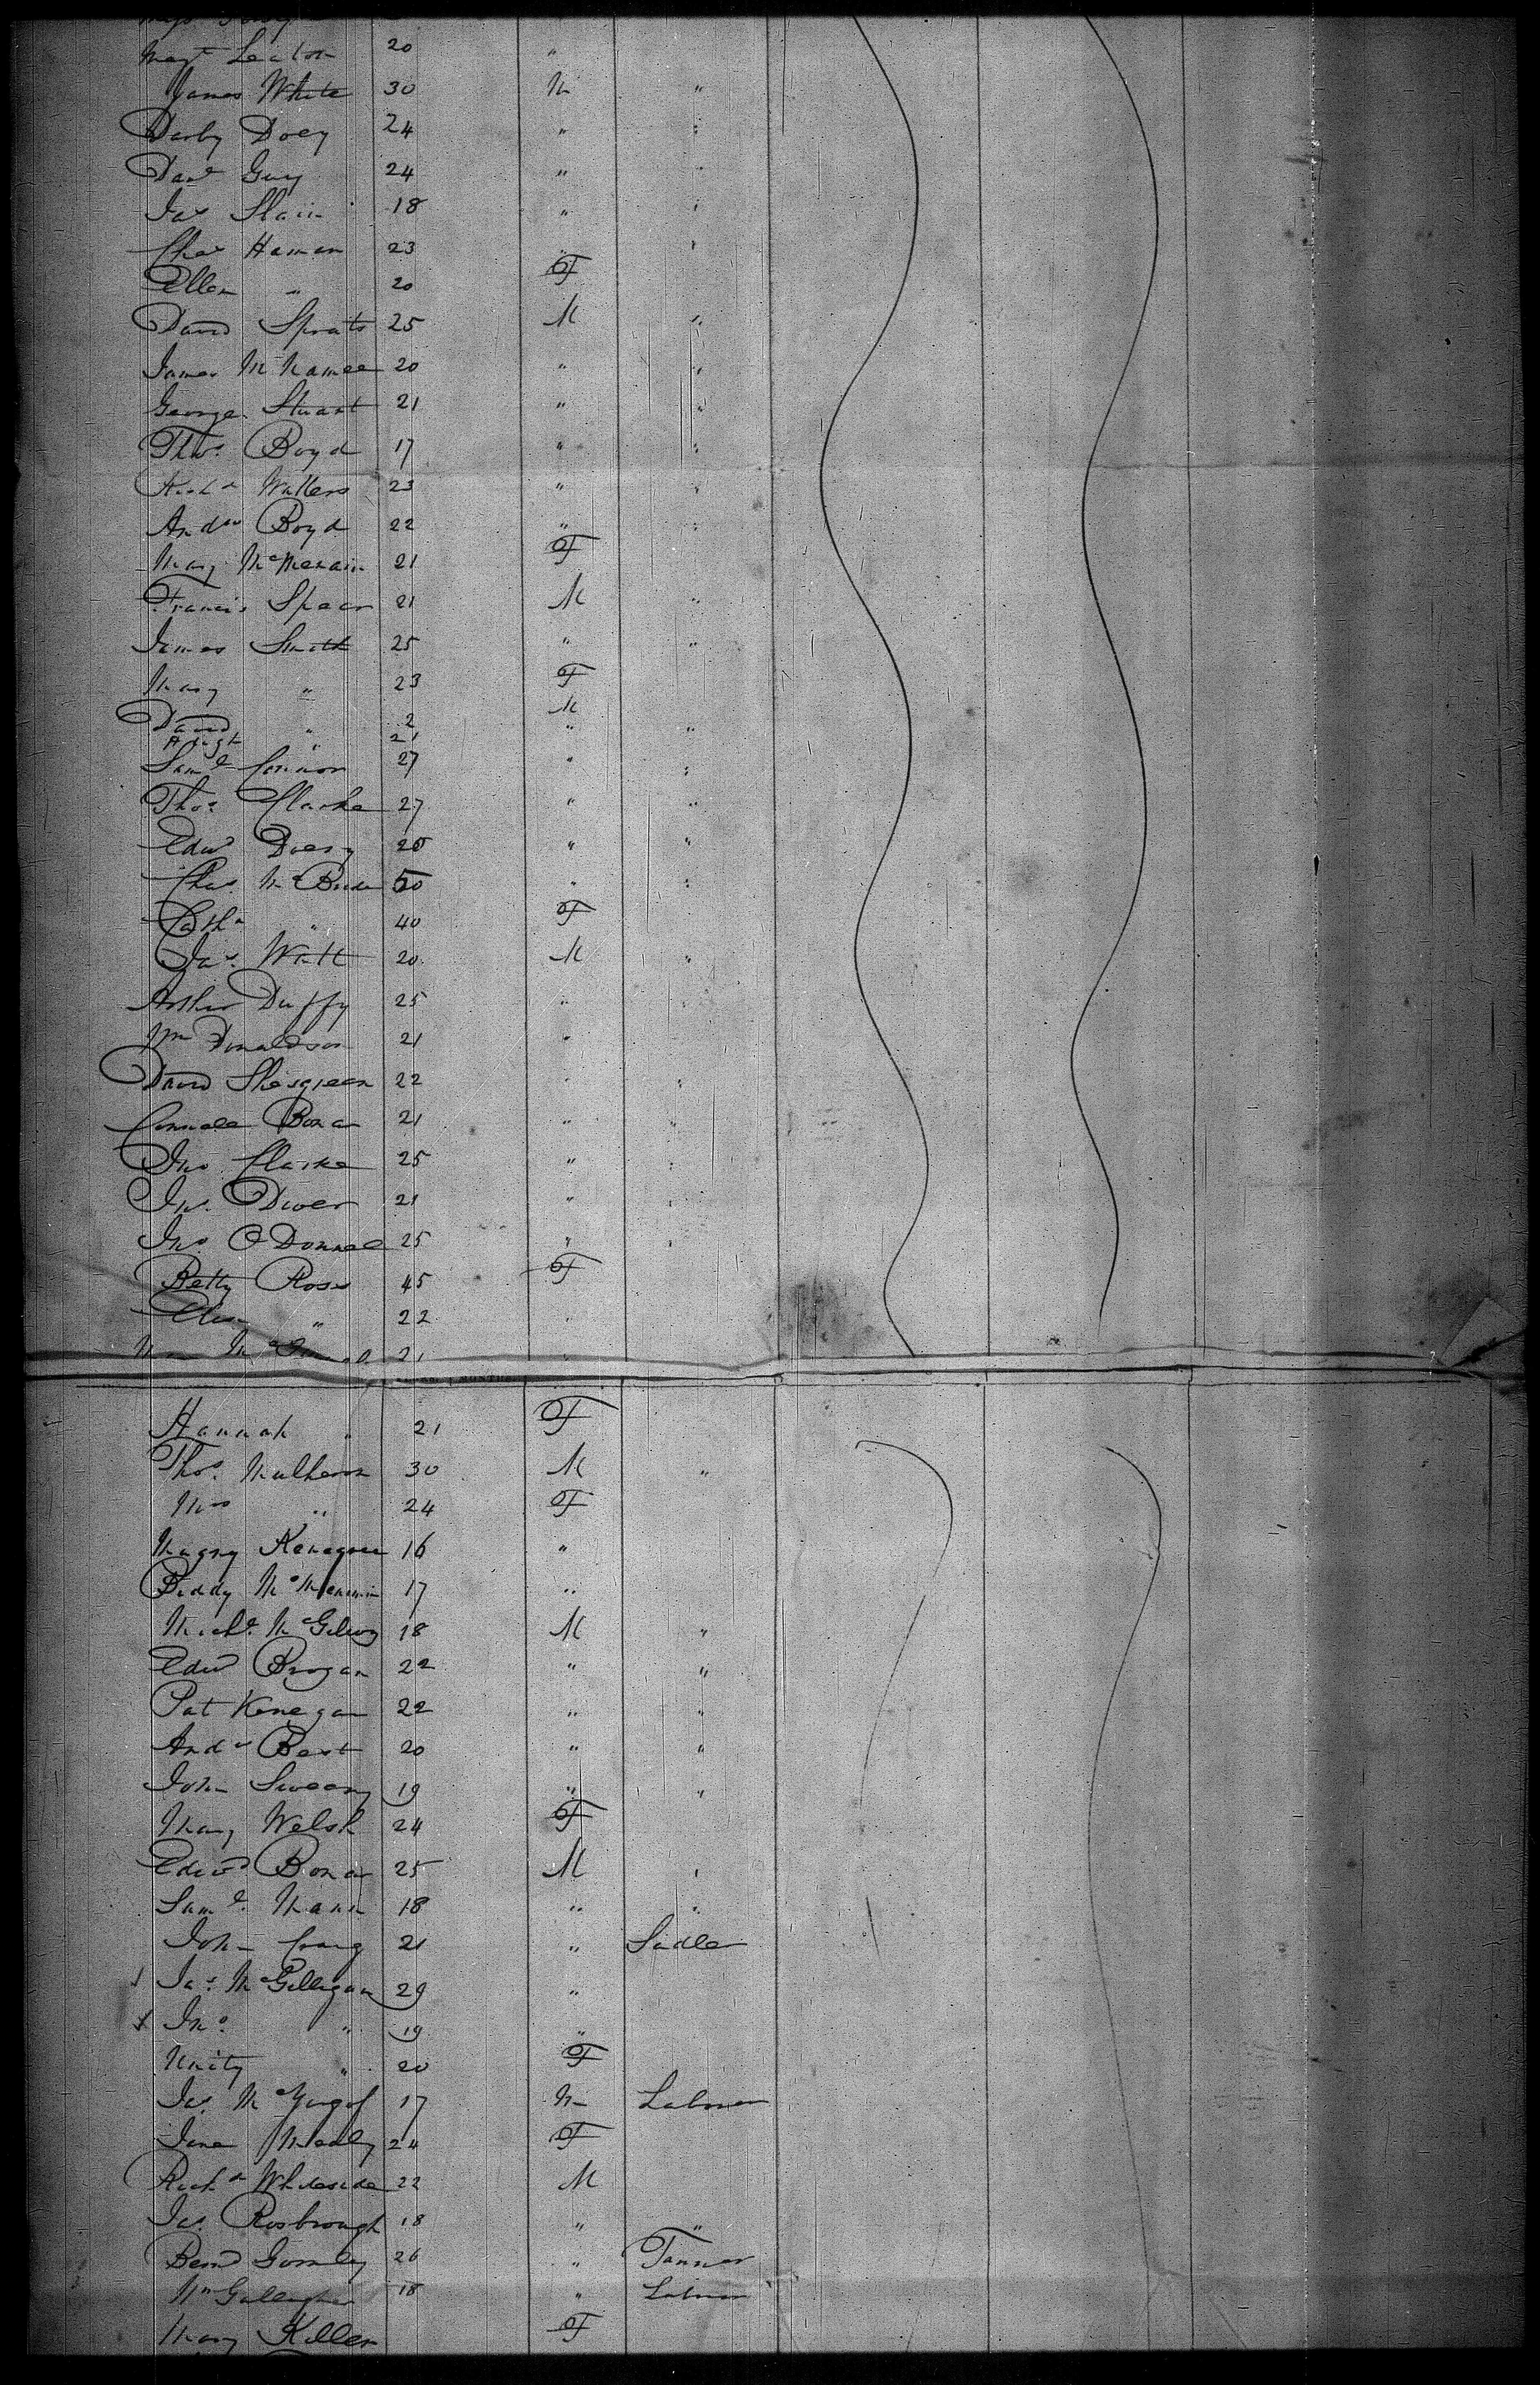 Margt Leaton 20 "
James White 30 M "
Darby Doey 24 " "
Davd Guy 24 " "
Jas Slain 18 " "
Chas Haman 23 " "
Ellen " 20 F
David Sprats 25 M "
James McNamee 20 " "
George Stuart 21 " "
Thos. Boyd 17 " "
Richd Watters 23 " "
Andw Boyd 22 " "
Mary McMenain 21 F
Francis Spear 21 M "
James Smith 25 " "
Mary " 23 F
David " 2 M
" 21 " "
Saml Connor 27 " "
Thos Clarke 27 " "
Edwd Doery 20 " "
Chas. McBride 50 " "
Cathn " 40 F
Jas. Watt 20 M "
Arthur Duffy 25 "
Wm Donaldson 21 "
David Shesgreen 22 " "
Connell Bonar 21 " "
Jno Clarke 25 " "
Jno. Diver 21 " "
Jno. O'Donnel 25 " "
Betty Ross 45 F
Ellen " 22 "
21
Hannah " 21 F
Thos. Mulhern 30 M "
Mrs " 24 F
Magny Kenegan 16 "
Biddy McMenamin 17 "
Michl. McGilwy 18 M "
Edwd Brogan 22 " "
Pat Kenegan 22 " "
Andw Best 20 " "
John Sweeny 19 " "
Mary Welsh 24 F
Edwd Bonar 25 M "
Saml. Mann 18 " "
John Craig 21 " Sadler
Jas. McGilligan 29 "
Jno. " 19 "
Unity " 20 F
Jas. 17 M Labour
Jane 24 F
Richd Whiteside 22 M
Jas. Rosbrough 18 " "
Bernd Gormley 26 " Tanner
Wm Gallagher 18 " Labour
Mary Killen F